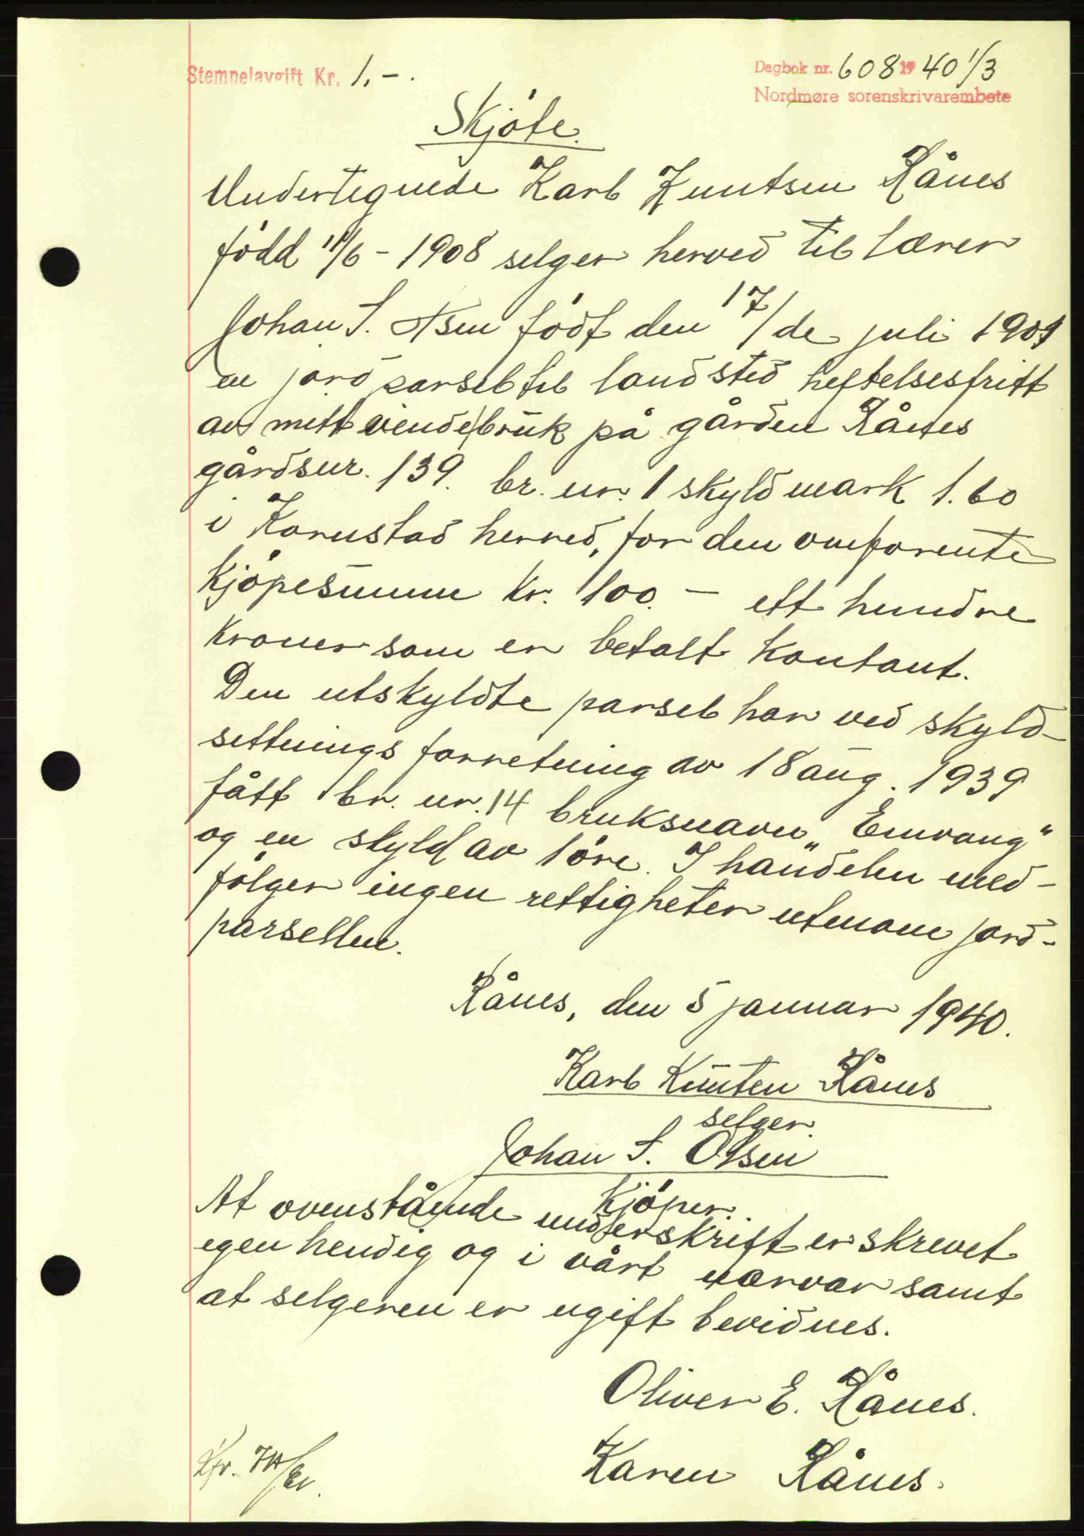 Stempelavgift Kr. 1,-.
Dagbok nr. 608 1940 1/3
Nordmøre sorenskrivarembete
Skjöte.
Undertegnede Karl Knutsen Rånes
född 11/6 - 1908 selger herved til lærer
Johan S. Olsen född den 17/de juli 1901
en jordparsel til landsted heftelsesfritt
av mitt eiende bruk på gården Rånes
gårdsnr. 139. br. nr. 1 skyld mark 1.60
i Kornstad herred, for den omforente
kjöpesumm kr. 100. - ett hundre
kroner som er betalt kontant.
Den utskyldte parsel har ved skyld-
settnings forretning av 18 aug. 1939
fått br. nr. 14 bruksnavn „Einvang"
og en skyld av 1 öre. I handelen med-
fölger ingen rettigheter utenom jord-
parsellen.
Rånes, den 5 januar 1940.
Karl Knutsen Rånes
selger.
Johan S. Olsen
Kjöper.
At ovenstående underskrift er skrevet
egen hendig og i vårt nærvær samt
at selgeren er ugift bevidnes.
Oliver E. Rånes.
Karen Rånes.